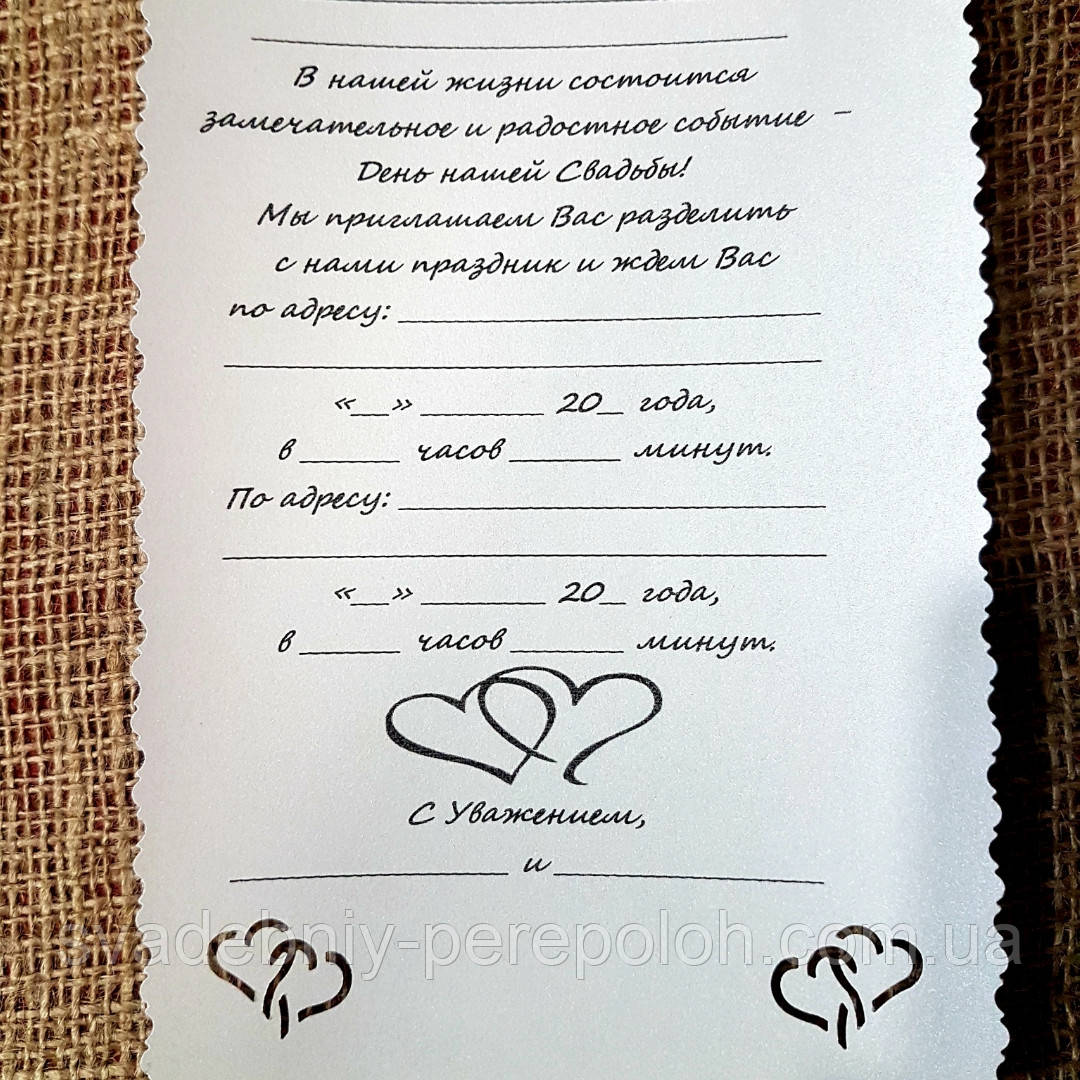 В нашей жизни состоится
замечательное и радостное событие –
День нашей Свадьбы!
Мы приглашаем Вас разделить
с нами праздник и ждем Вас
по адресу: ____________________
____________________
«__» ________ 20__ года,
в ______ часов _______ минут.
По адресу: ____________________
____________________
«__» ________ 20__ года,
в ______ часов _______ минут.
С Уважением,
____________________ и ____________________
svadebniy-perepoloh.com.ua